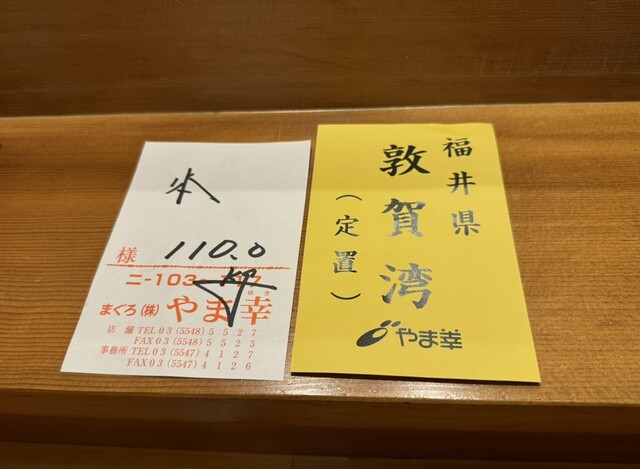 本
様
110.0
kg
まぐろ(株)やま幸
店 舗 TEL 03 (5548) 5 5 2 7
FAX 03 (5548) 5 5 2 3
事務所 TEL 03 (5547) 4 1 2 7
FAX 03 (5547) 4 1 2 6
福井県
敦賀湾
(定置)
やま幸